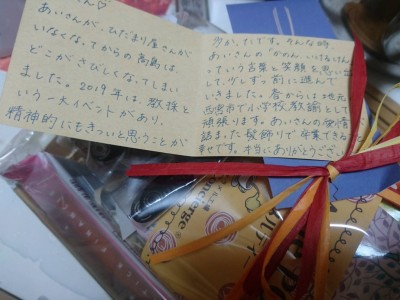 さん♡
あいさんが、ひだまり屋さんが
いなくなってからの高島は、
どこかさびしくなってしまい
ました。2019年は、教採と
いう一大イベントがあり、
精神的にもきついと思うことが
多か、たです。そんな時
あいさんの「かのん、いけるいけん」
っていう言葉と笑顔を思い出
して、少しずつ前に進んで
いきました。春からは地元
西宮市で小学校教諭として
頑張ります。あいさんの愛情
詰まった髪飾りで卒業できて
幸せです。本当にありがとうござい